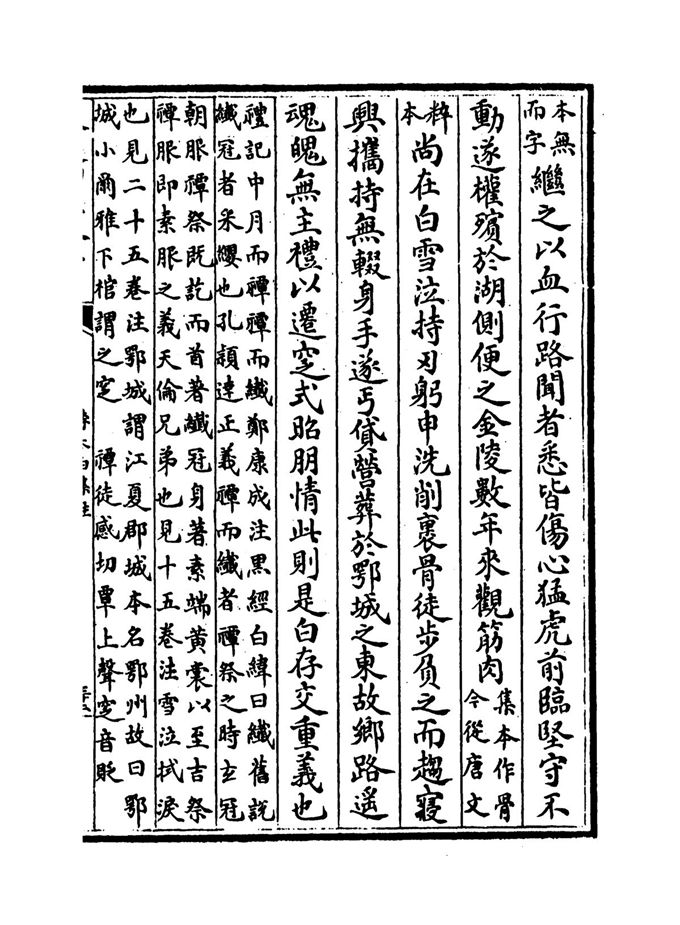 本無
而字繼之以血行路聞者悉皆傷心猛虎前臨堅守不
動遂權殯於湖側便之金陵數年來觀筋肉集本作骨
今從唐文
粹
本尚在白雪泣持刃躬申洗削裹骨徒步負之而趨寢
興攜持無輟身手遂丐貸營葬於鄂城之東故鄉路遥
魂魄無主禮以遷窆式昭朋情此則是白存交重義也
禮記中月而禫禫而纖鄭康成注黒經白緯曰纖舊説
纖冠者采纓也孔頴達正義禫而纖者禫祭之時玄冠
朝服禫祭既訖而首著纖冠身著素端黄裳以至吉祭
禫服即素服之義天倫兄弟也見十五卷注雪泣拭淚
也見二十五卷注鄂城謂江夏郡城本名鄂州故曰鄂
城小爾雅下棺謂之窆 禫徒感切覃上聲窆音貶